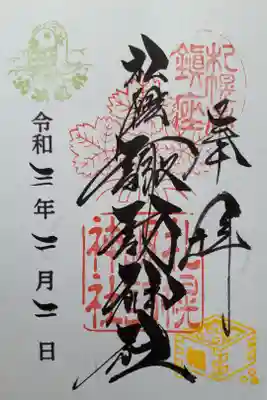 札幌
鎮座
奉拝
札幌諏訪神社
札幌
諏訪
神社
令和 年 月 日